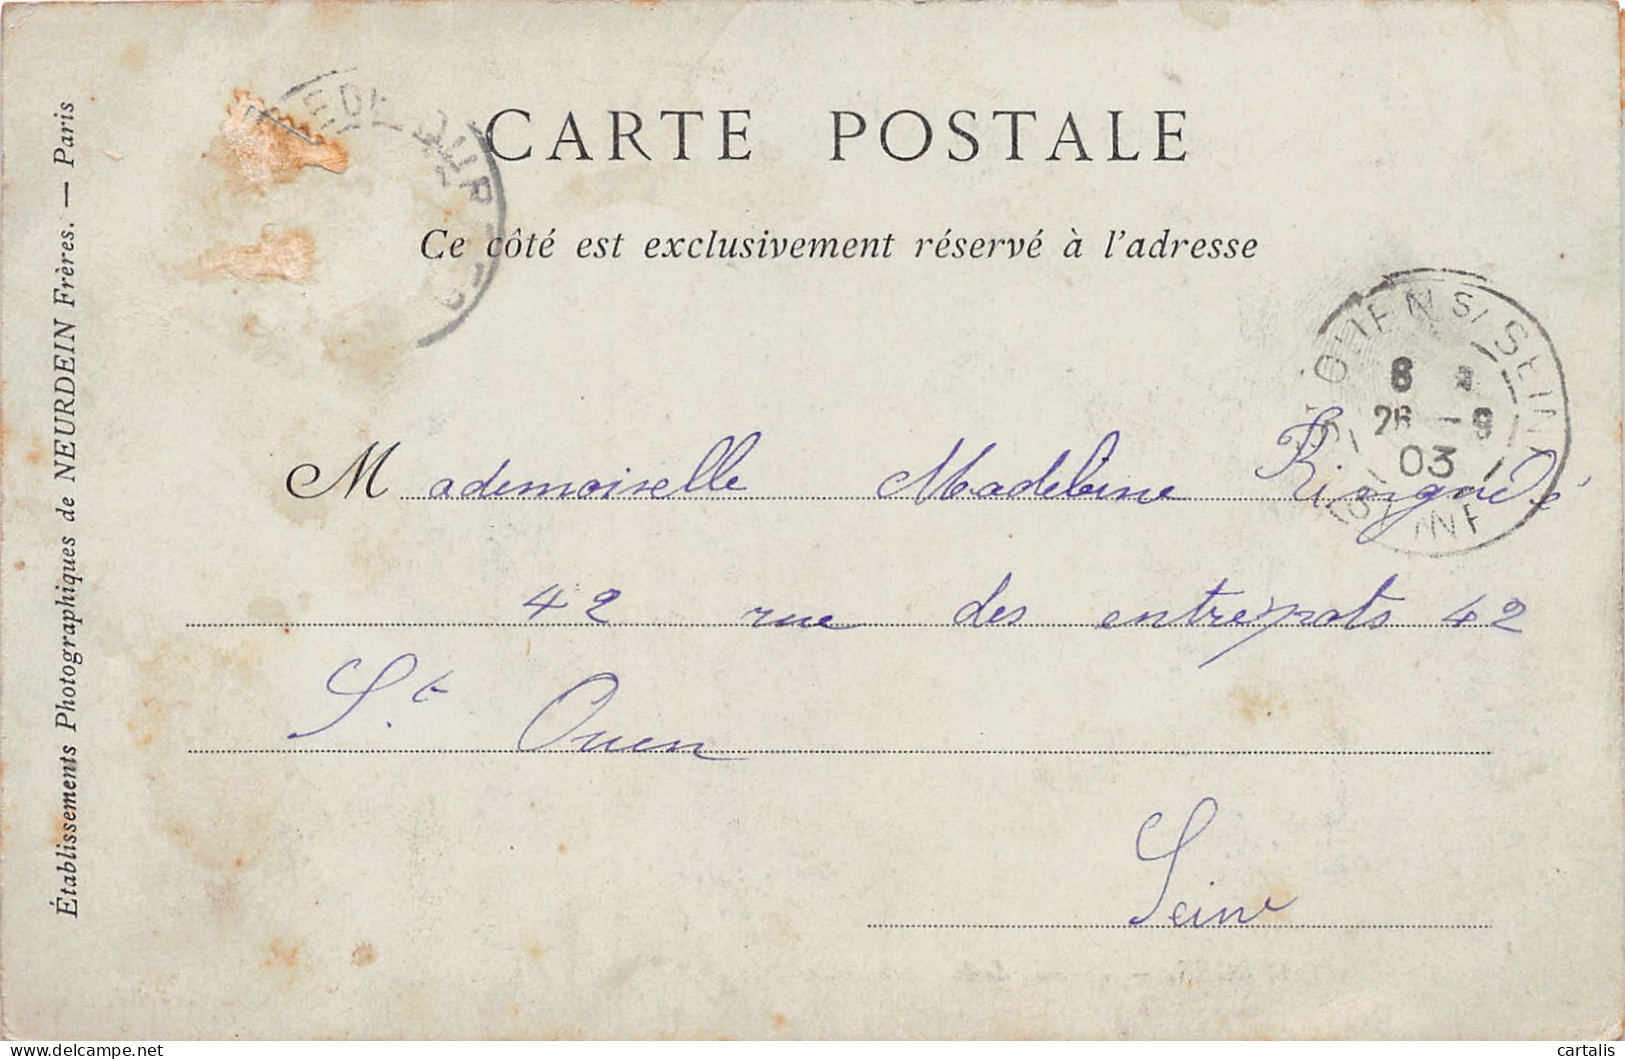 CARTE POSTALE
Ce côté est exclusivement réservé à l'adresse
Établissements Photographiques de NEURDEIN Frères. — Paris
OUEN S/ SEINE
8
26 -9
03
SEINE
Mademoiselle Madeleine
42 rue des entrepots 42
St. Ouen
Seine
cartalis
www.delcampe.net